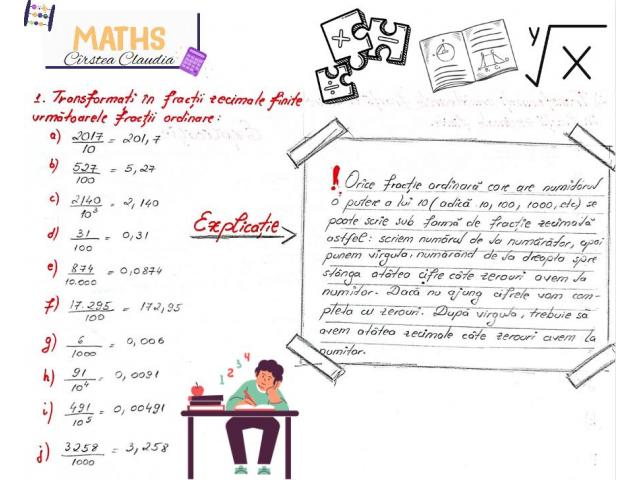 MATHS
Cîrstea Claudia
1. Transformați în fracții zecimale finite
următoarele fracții ordinare:
a) 2017/10 = 201,7
b) 527/100 = 5,27
c) 2140/10³ = 2,140
d) 31/100 = 0,31
e) 874/10.000 = 0,0874
f) 17.295/100 = 172,95
g) 6/1000 = 0,006
h) 91/10⁴ = 0,0091
i) 491/10⁵ = 0,00491
j) 3258/1000 = 3,258
Explicație
! Orice fracție ordinară care are numitorul
o putere a lui 10 (adică 10, 100, 1000, etc) se
poate scrie sub formă de fracție zecimală
astfel: scriem numărul de la numărător, apoi
punem virgula, numărând de la dreapta spre
stânga atâtea cifre câte zerouri avem la
numitor. Dacă nu ajung cifrele vom com-
pleta cu zerouri. După virgulă, trebuie să
avem atâtea zecimale câte zerouri avem la
numitor.
y√X
1 2 3 4